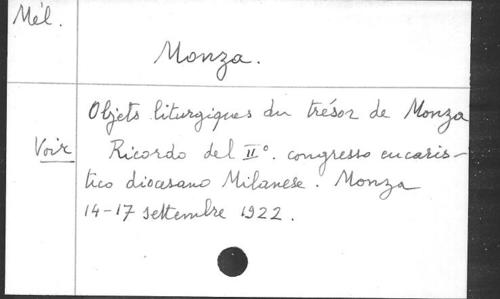 Mél.
Monza.
Objets liturgiques du trésor de Monza
Voir Ricordo del II°. congresso eucaris-
tico diocesano Milanese. Monza
14-17 settembre 1922.